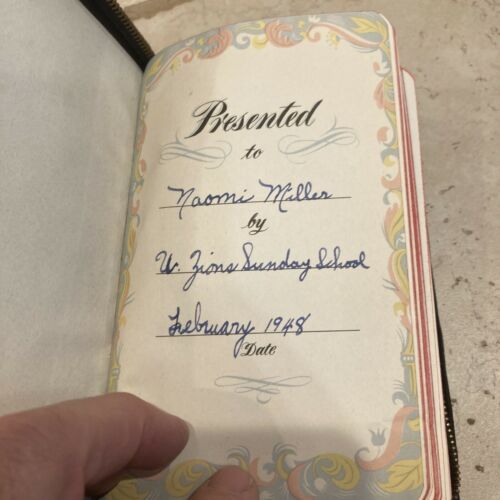 Presented
to
Naomi Miller
by
U. Zions Sunday School
February 1948
Date